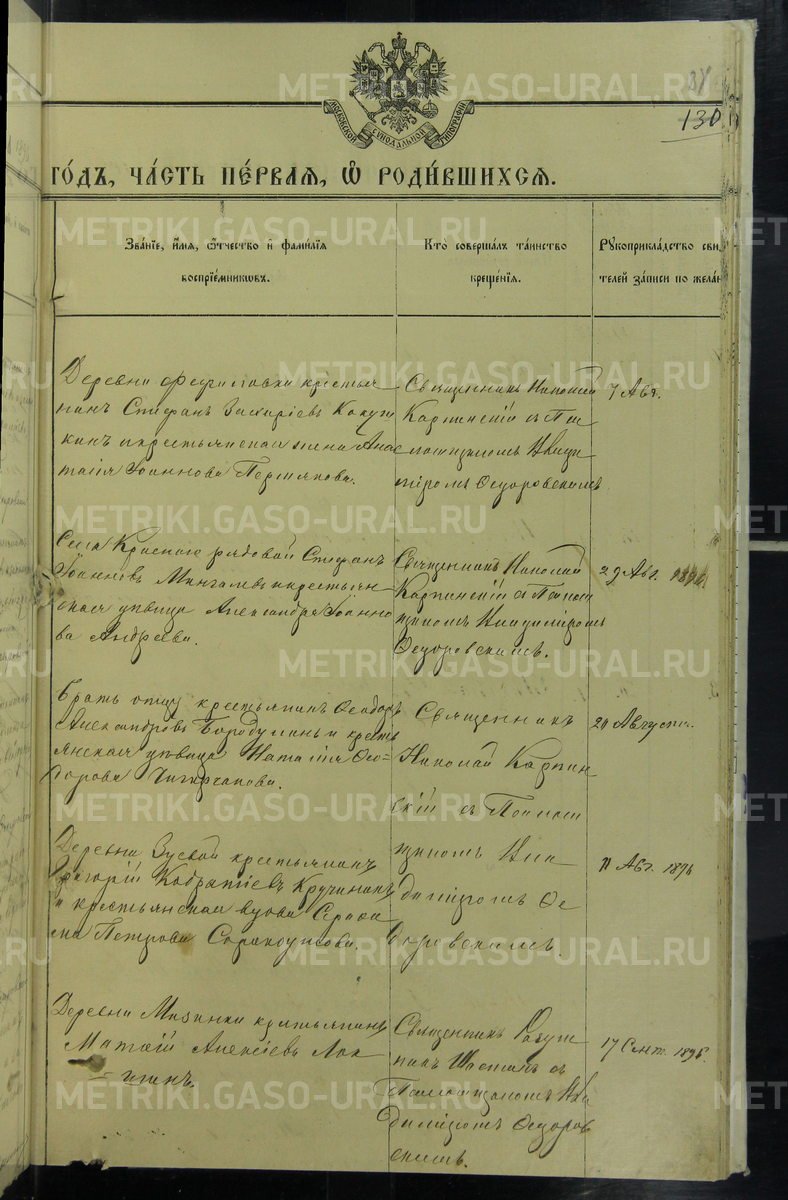 38
130
МОСКОВСКОЙ СѴНОДАЛЬНОЙ ТИПОГРАФІИ
ГО́ДЪ, ЧА́СТЬ ПЕ́РВАЯ, Ѡ҆ РОДИ́ВШИХСЯ.
Зва́нїе, и҆́мя, ѻ҆́тчество и҆ фами́лїя
воспрїе́мникѡвъ.
Кто̀ соверша́лъ та́инство
креще́нїя.
Рꙋкоприкла́дство сви
телей за́писи по жела́н
Деревни крестья
нинъ Стефанъ Захаріевъ
кинъ и крестьянская жена Анас
тасія Іоаннова Пермякова.
Священникъ Николай
Карпинскій с Пса
ломщикомъ Влади
міромъ Ѳедоровскимъ
7 Авг.
Села Краснаго рядовой Стефанъ
Іоанновъ и крестьян
ская дѣвица Александра Іоанно
ва Андреева.
Священникъ Николай
Карпинскій с Псалом
щикомъ Владиміромъ
Ѳедоровскимъ.
29 Авг. 1896.
Братъ отцу крестьянинъ Ѳеодоръ
Александровъ Бородулинъ и кресть
янская дѣвица Наталія Ѳео=
дорова
Священникъ
Николай Карпин
скій съ Псалом
щикомъ Вла
диміромъ Ѳе
доровскимъ.
20 Августа.
Деревни Зуевой крестьянинъ
Григорій Кодратіевъ Кручининъ
и крестьянская вдова Серафи
ма Петрова
11 Авг. 1896
Деревни Мизинки крестьянинъ
Матѳій Алексіевъ Лок
тинъ.
Священникъ
Шастинъ съ
Псаломщикомъ Вла
диміромъ Ѳедоров
скимъ.
17 Сент. 1896.
METRIKI.GASO-URAL.RU